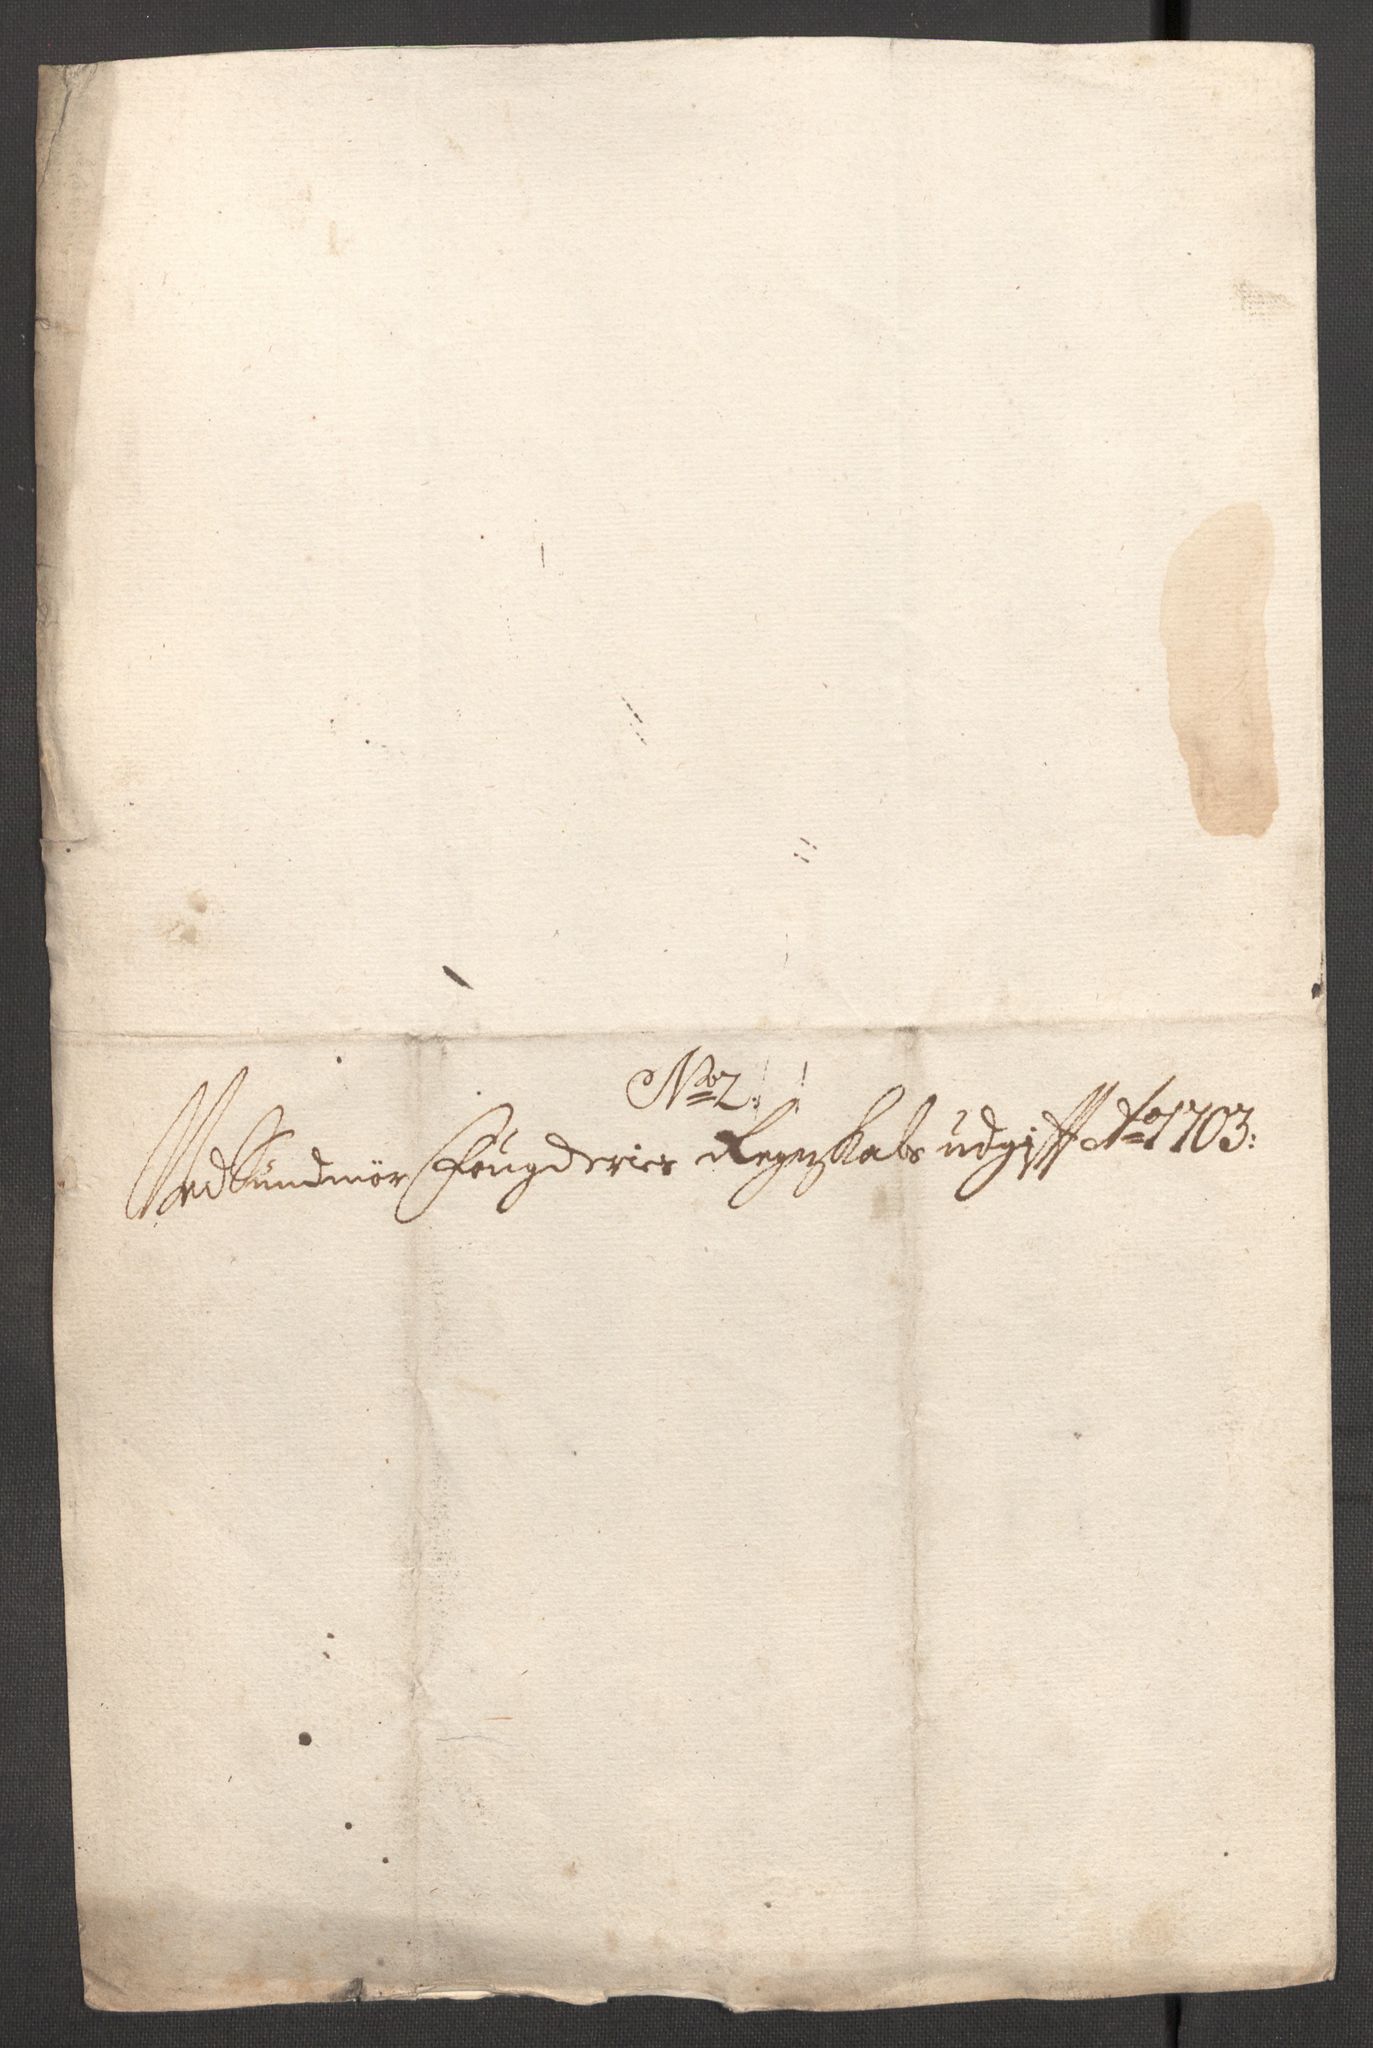 No 2:
Ved Sundmör Fougderies Regenskabs udgifft Ao 1703: